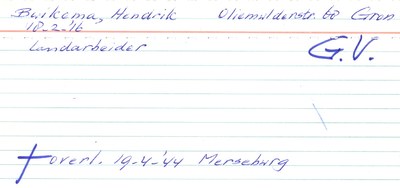 Beikema, Hendrik Oliemulderstr. 60 Gron
10-2-'16
Landarbeider G.V.
† overl. 19-4-'44 Merseburg